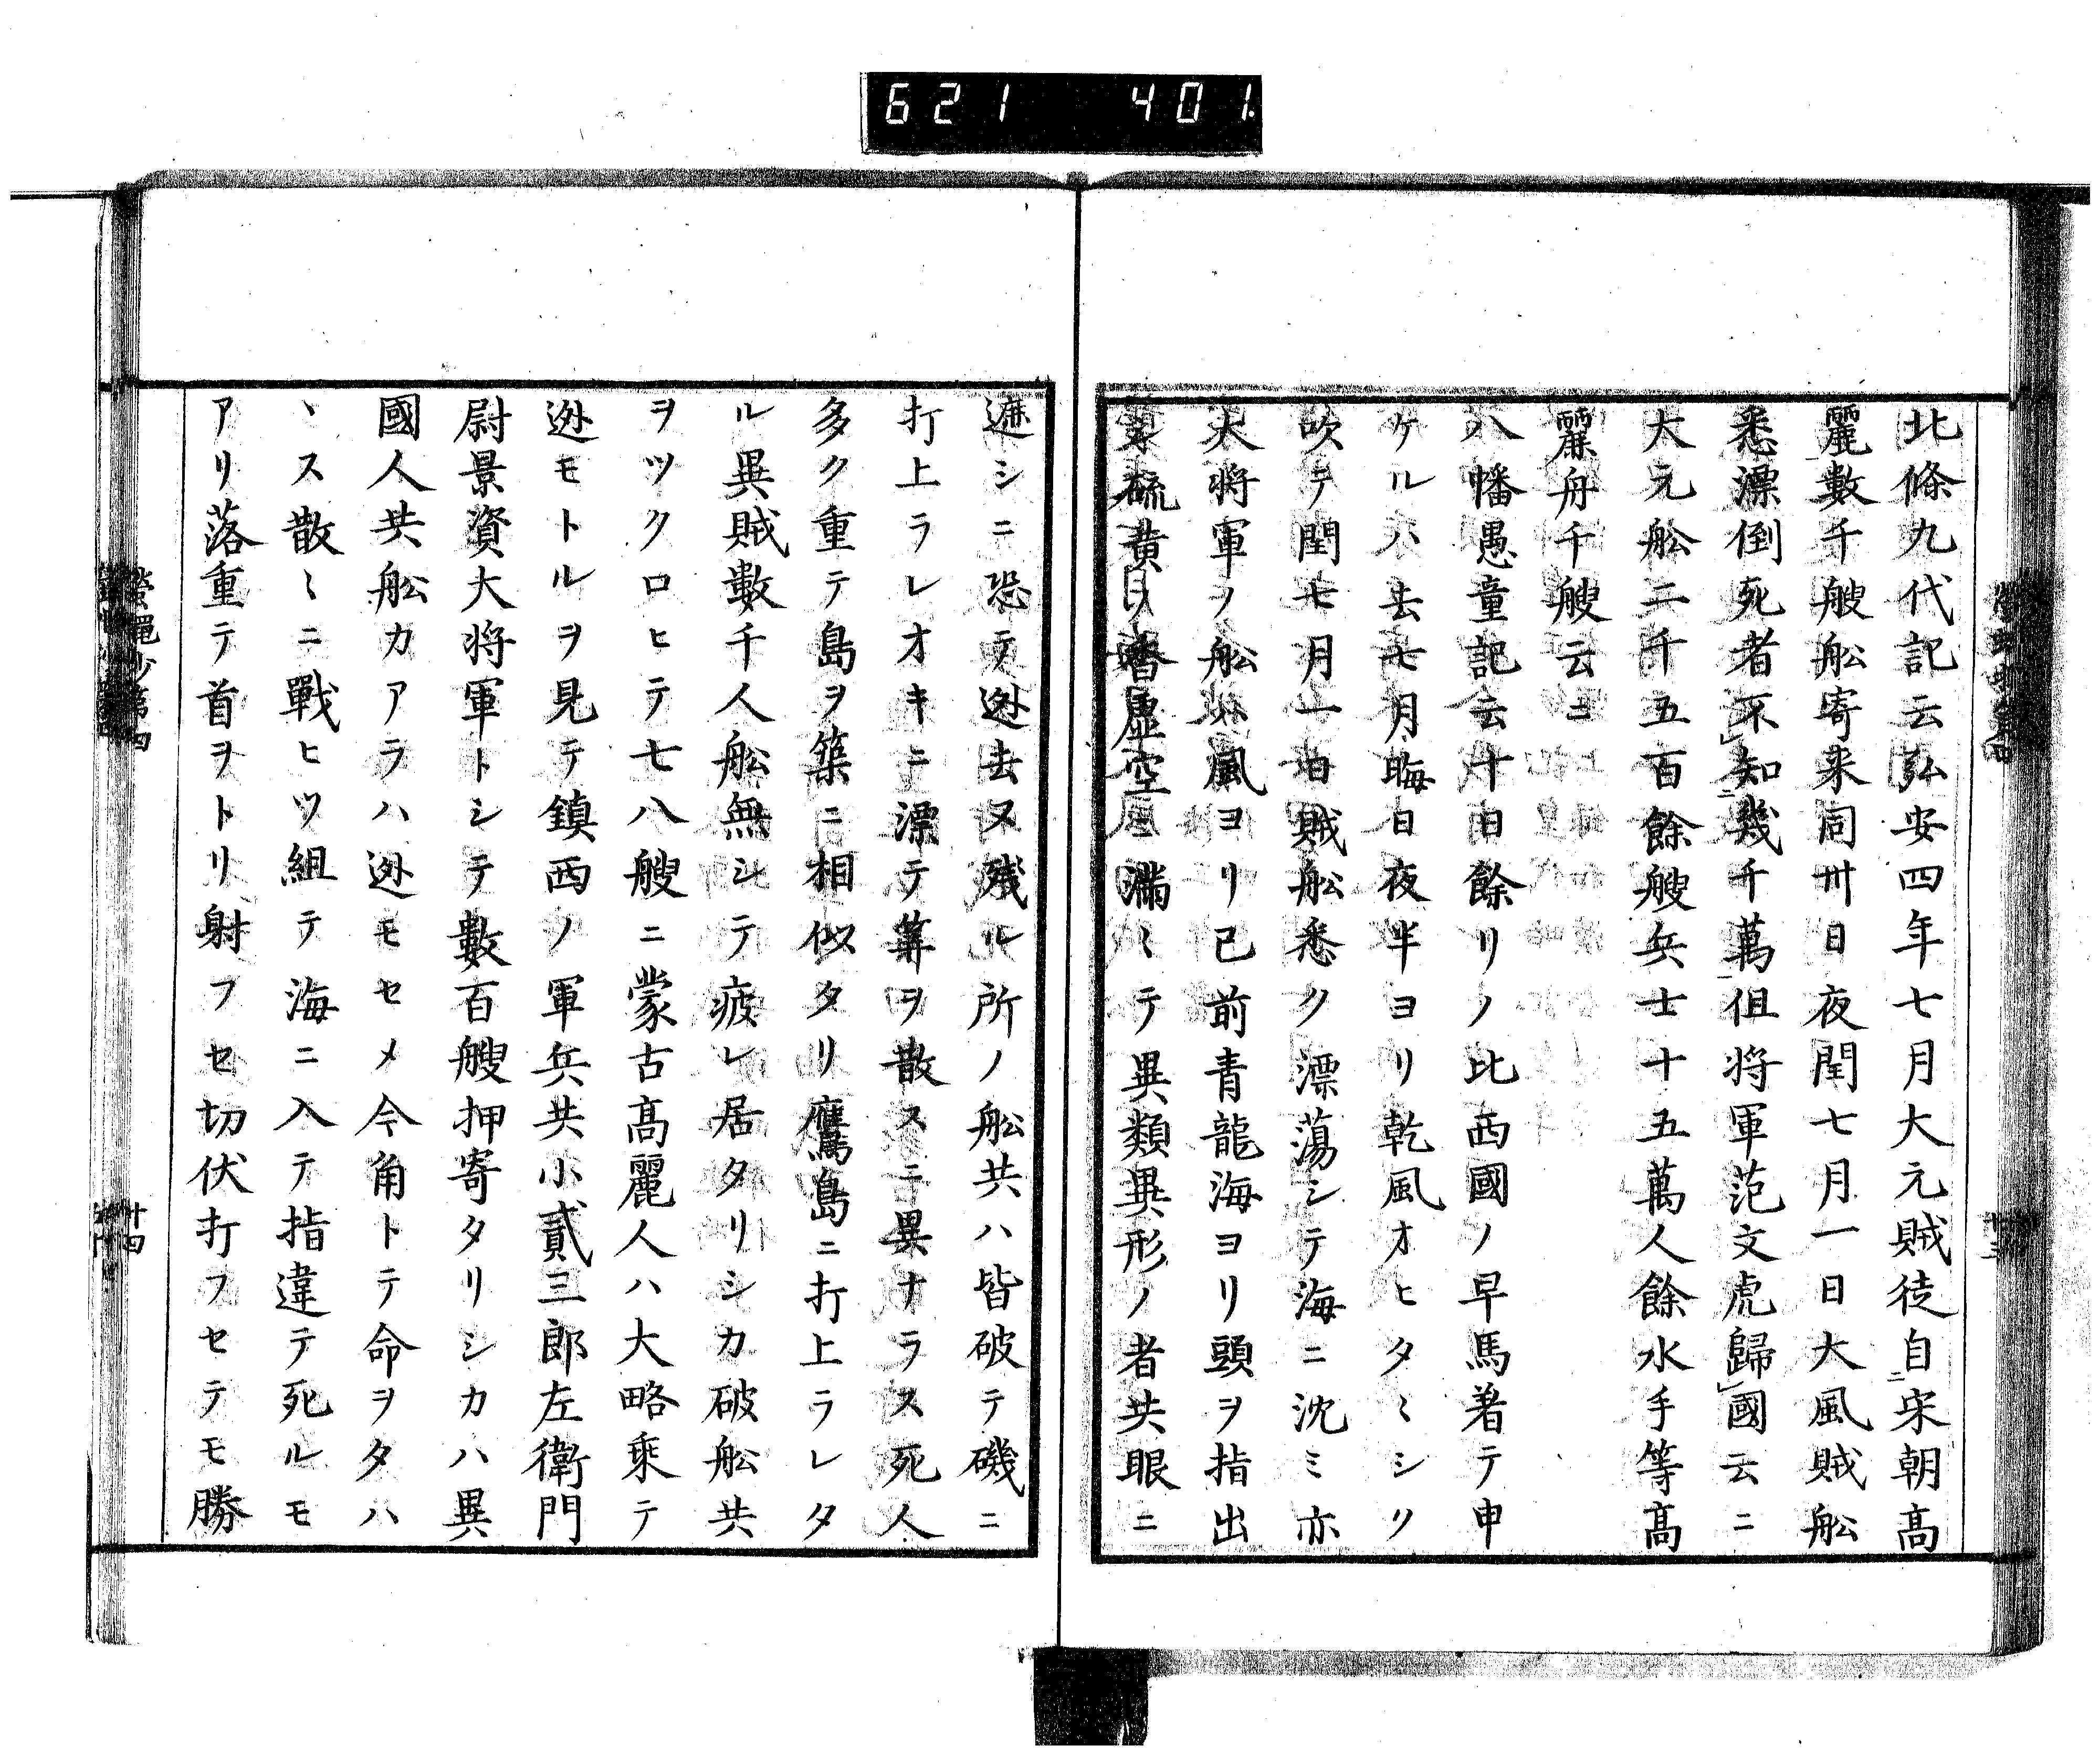 621 401.
北條九代記云弘安四年七月大元賊徒自宋朝高
麗數千艘舩寄来同卅日夜閏七月一日大風賊舩
悉漂倒死者不知幾千萬但将軍范文虎歸國云ニ
大元舩二千五百餘艘兵士十五萬人餘水手等高
麗舟千艘云ニ
八幡愚童記云十日餘リノ比西國ノ早馬着テ申
ケルハ去七月晦日夜半ヨリ乾風オヒタヽシリ
吹テ閏七月一日賊舩悉ク漂蕩シテ海ニ沈ミ亦
大将軍ノ舩ハ風ヨリ已前青龍海ヨリ頭ヲ指出
硫黄ノ香虚空ニ満ミテ異類異形ノ者共眼ニ
遮シニ恐テ迯去ヌ残ル所ノ舩共ハ皆破テ磯ニ
打上ラレオキニ漂テ筭ヲ散スニ異ナラス死人
多ク重テ島ヲ築ニ相似タリ鷹島ニ打上ラレタ
ル異賊數千人舩無シテ疲レ居タリシカ破舩共
ヲツクロヒテ七八艘ニ蒙古高麗人ハ大略乗テ
迯モトルヲ見テ鎮西ノ軍兵共小貳三郎左衛門
尉景資大将軍トシテ數百艘押寄タリシカハ異
國人共舩カアラハ迯モセメ今角トテ命ヲタハ
ヽス散ミニ戰ヒツ組テ海ニ入テ指違テ死ルモ
アリ落重テ首ヲトリ射フセ切伏打フセテモ勝
螢蠅抄第四
十四